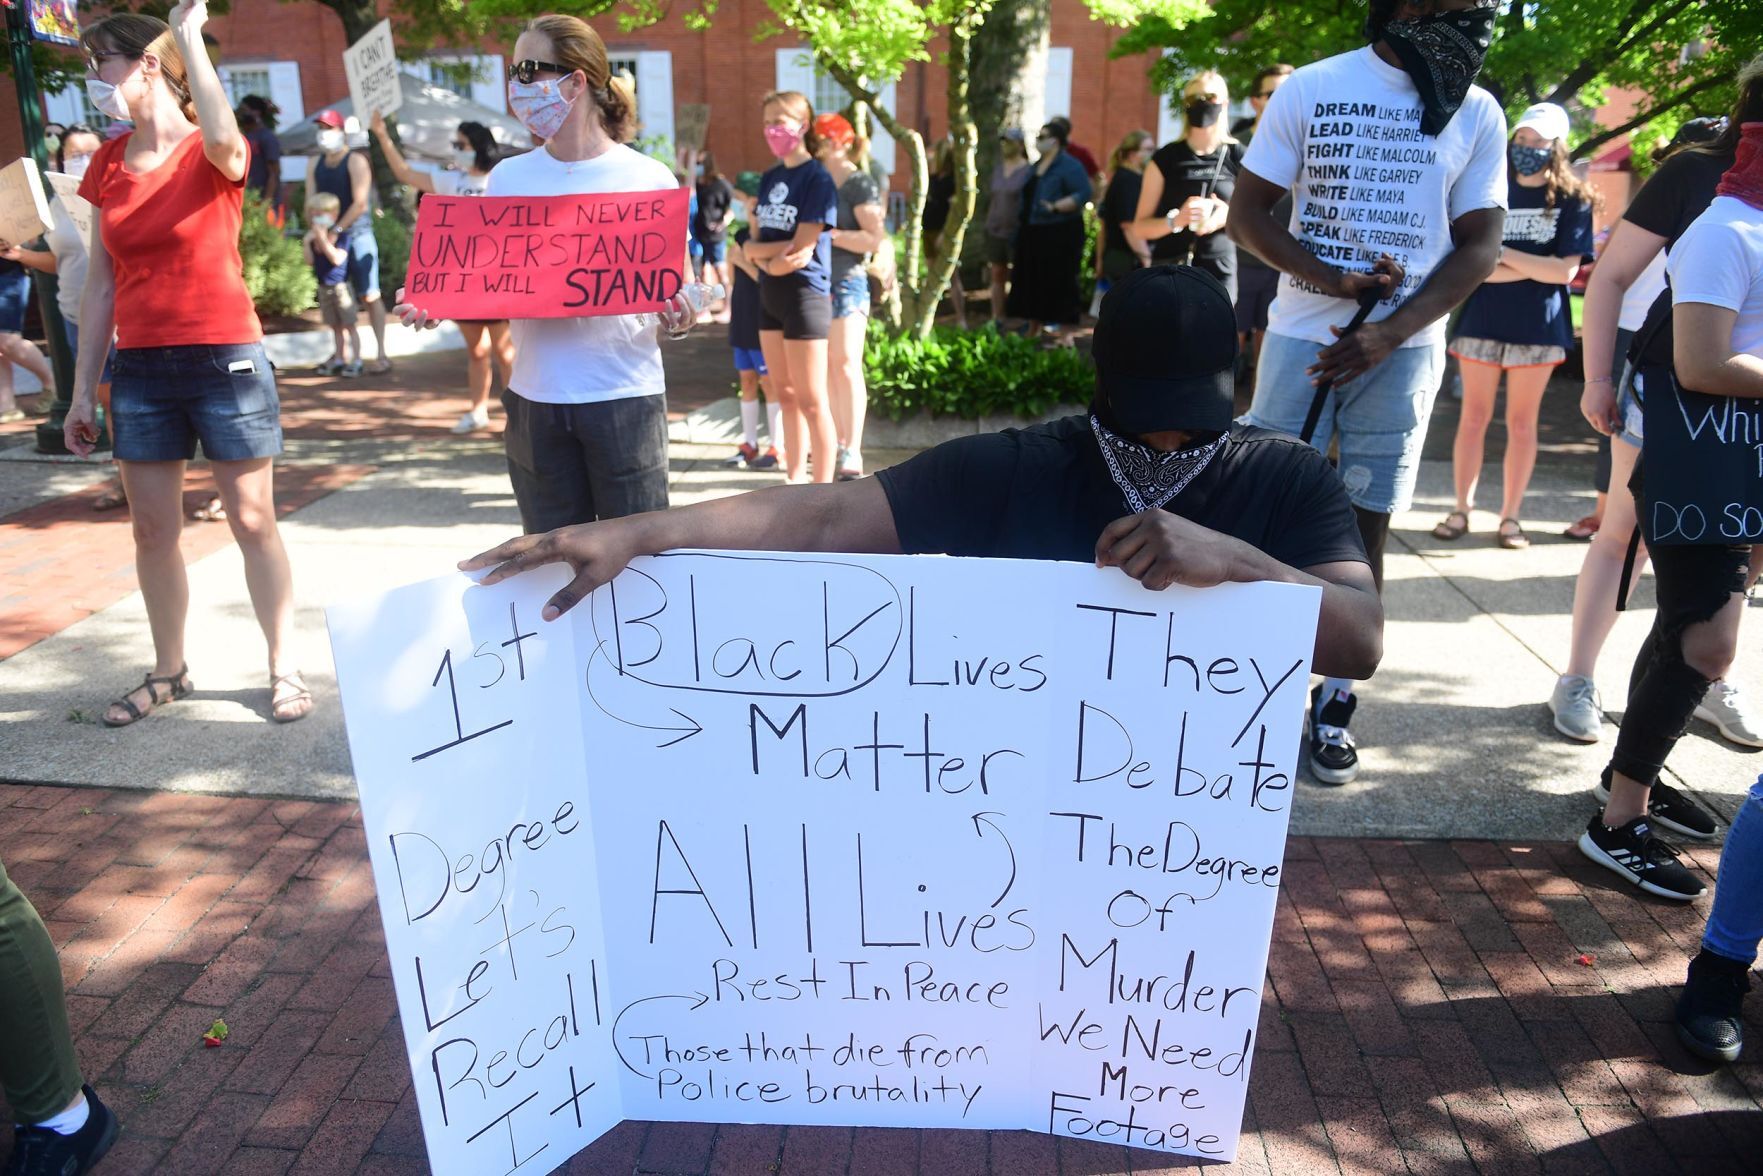 I CAN'T
BREATHE
I WILL NEVER
UNDERSTAND
BUT I WILL STAND
DREAM LIKE MA
LEAD LIKE HARRIET
FIGHT LIKE MALCOLM
THINK LIKE GARVEY
WRITE LIKE MAYA
BUILD LIKE MADAM C.J.
SPEAK LIKE FREDERICK
EDUCATE LIKE B.
Whi
DO SO
1st
Degree
Let's
Recall
It
Black Lives
Matter
All Lives
Rest In Peace
Those that die from
Police brutality
They
Debate
The Degree
Of
Murder
We Need
More
Footage